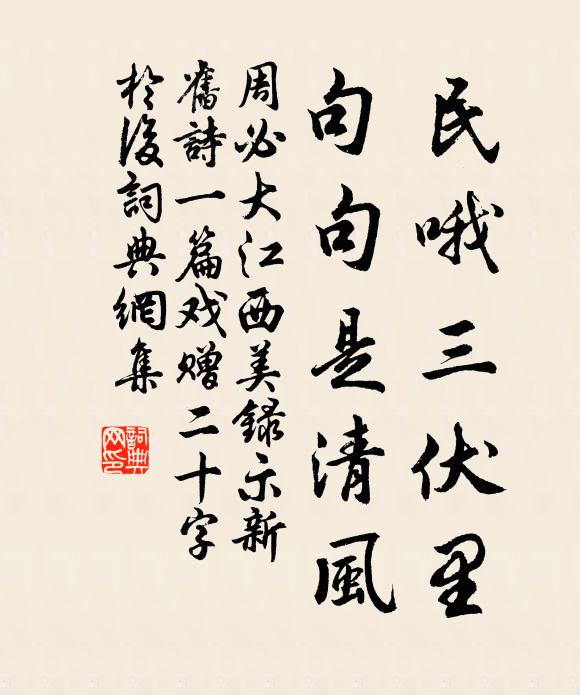 民哦三伏里
句句是清風
周必大江西美錄示新
舊詩一篇戏赠二十字
於後詞典網集
詞典
网印